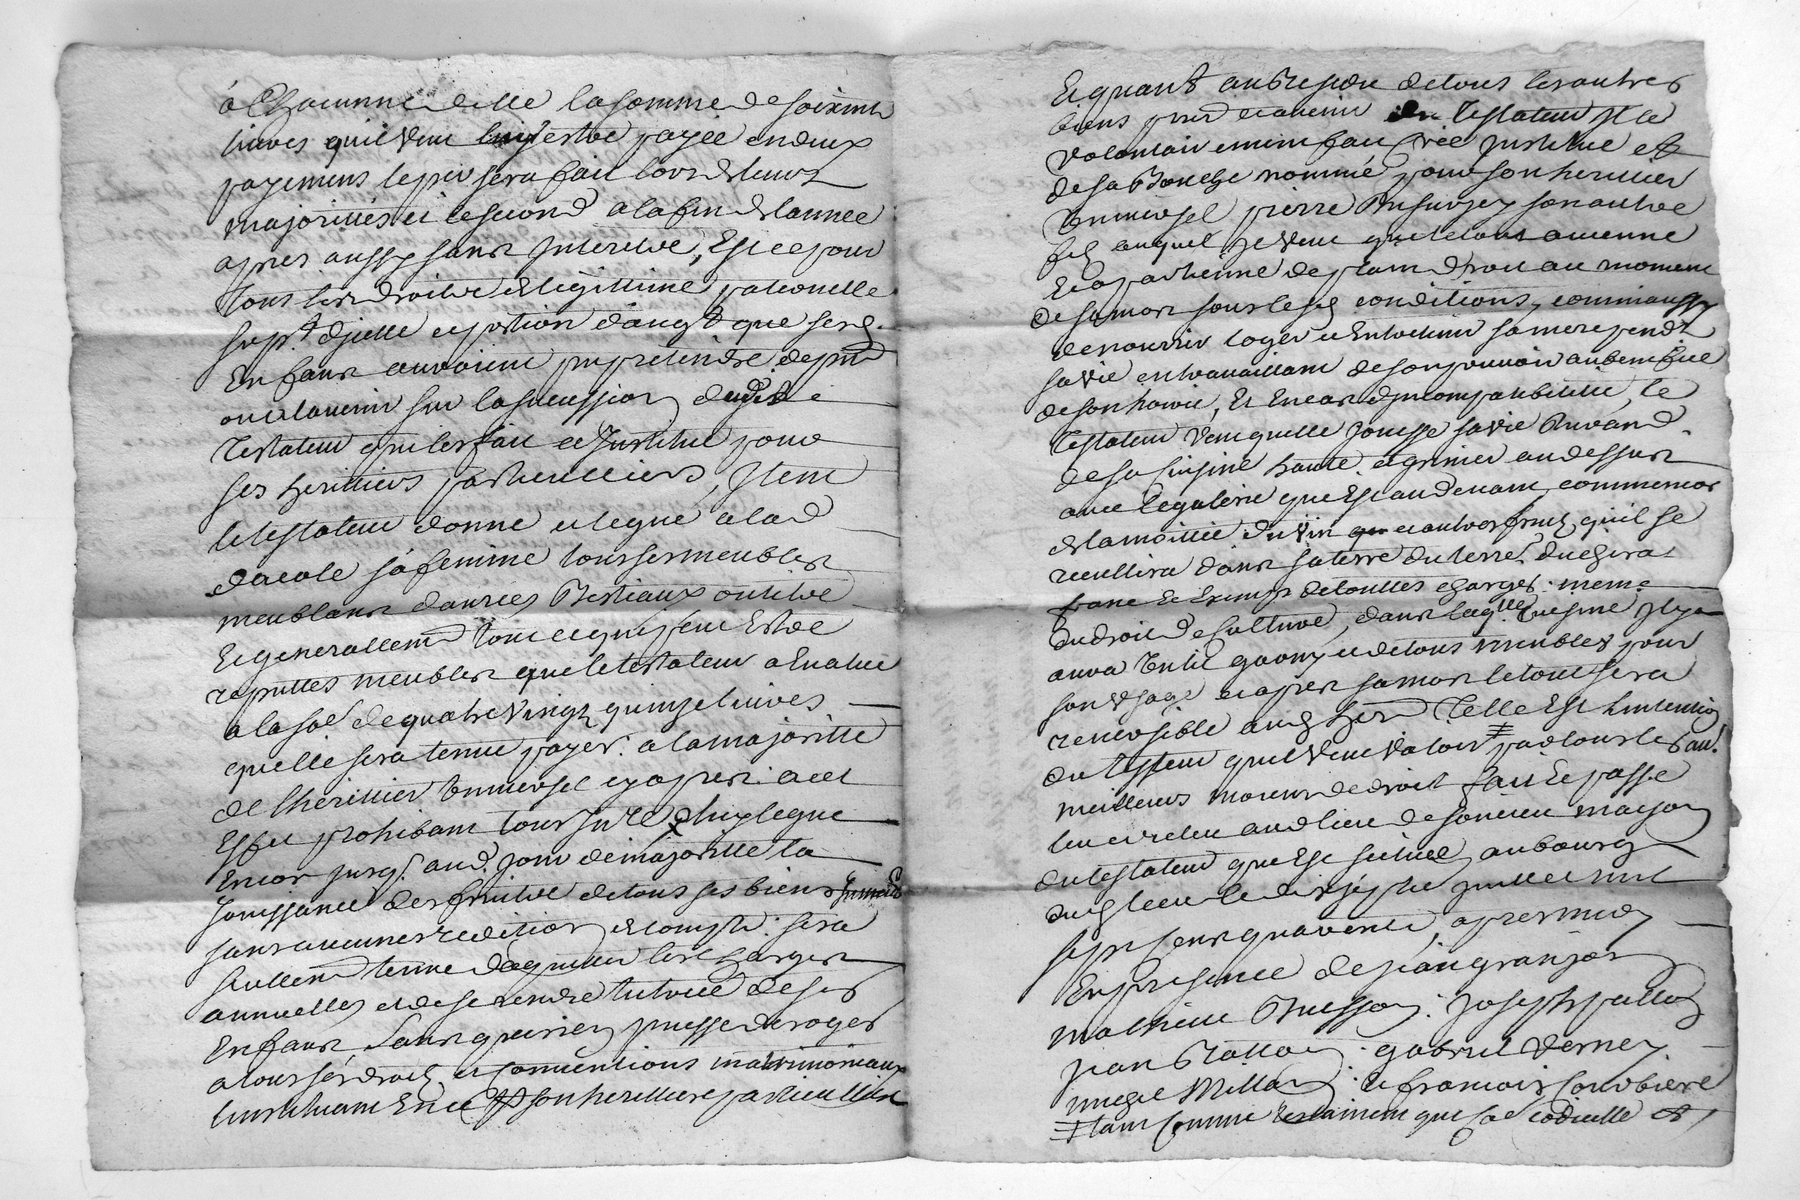 a Chacunne delle la somme de soixante
livres quil veut luy estre payée en deux
payemens le pr. sera fait lors de leurs
majorittés et le second a la fin de lannee
apres aussy sans Interetre, Est ce pour
tous leurs droitre et legittime paternelle
supt. djcelle et portion daugt. que sesd.
Enfans auroient pu pretendre de pnt
ou a lavenir sur la sucession dudit
Testateur qui les fait et Institue pour
ses heritiers particulliers, Item
le testateur donne et legue a lad
sa femme tous ses meubles
meublans danrees Bestiaux outitre
Et generallemt tout ce qui peut Estre
reputtés meubles que le testateur a Evalué
a la som de quatre vingt quinze livres
quelle sera tenue payer a la majoritte
de lherittier universel cy apres a cet
Effet prohibant tous Inre luy legue
Encor jusq. aud. jour de majoritte la
Jouissance des fruitre de tous ses biens
sans aucunes reddition de compte sera
seullemt tenue daquitter les charges
annuelles et de se rendre tutrice de ses
Enfans, sans que rien puisse deroger
a tous ses droits et conventions matrimoniaux
linstituant En ce son heritiere particulliere
Et quant au Residu de tous les autres
biens pnts et avenir le Testateur de ce
volontairement en a fait créé Institué et
de sa Bouche nommé pour son heritier
universel pierre son autre
fils auquel il veut que le tout avienne
Et apartienne de plain droit au moment
de sa mort sous lesd conditions, comm aussy
de nourrir loger et Entretenir sa mere pendt
sa vie en travaillant de son pouvoir au benefice
de son hoirie, Et En cas djncompatibilité, le
Testateur veut quelle jouisse sa vie durand
de sa Cuisine haute et grenier au dessus
avec legalerie que Est au devant, comm encor
de la moitié du vin et autres fruits quil se
recullira dans sa terre du terre duch sera
franc et Exempt de touttes charges meme
du droit de Culture, dans laqlle Cuisine Il y
aura un lit garny et de tous meubles pour
son usage et apres sa mort le tout sera
reversible aud her Telle Est lintention
du Testeur quil veut valoir par tous les aut.
meilleurs moiens de droit fait Et passé
leu et releu aud lieu de son neu maison
du testateur que Est scitué au bourg
dud lieu le dix sept juillet mil
sept cent quarente, apres midy
En presence de jean granjon
Mathieu Buisson : Joseph
jean : gabriel verney
michel : et francois Courbiere
tant Comme testament que par Codicille et